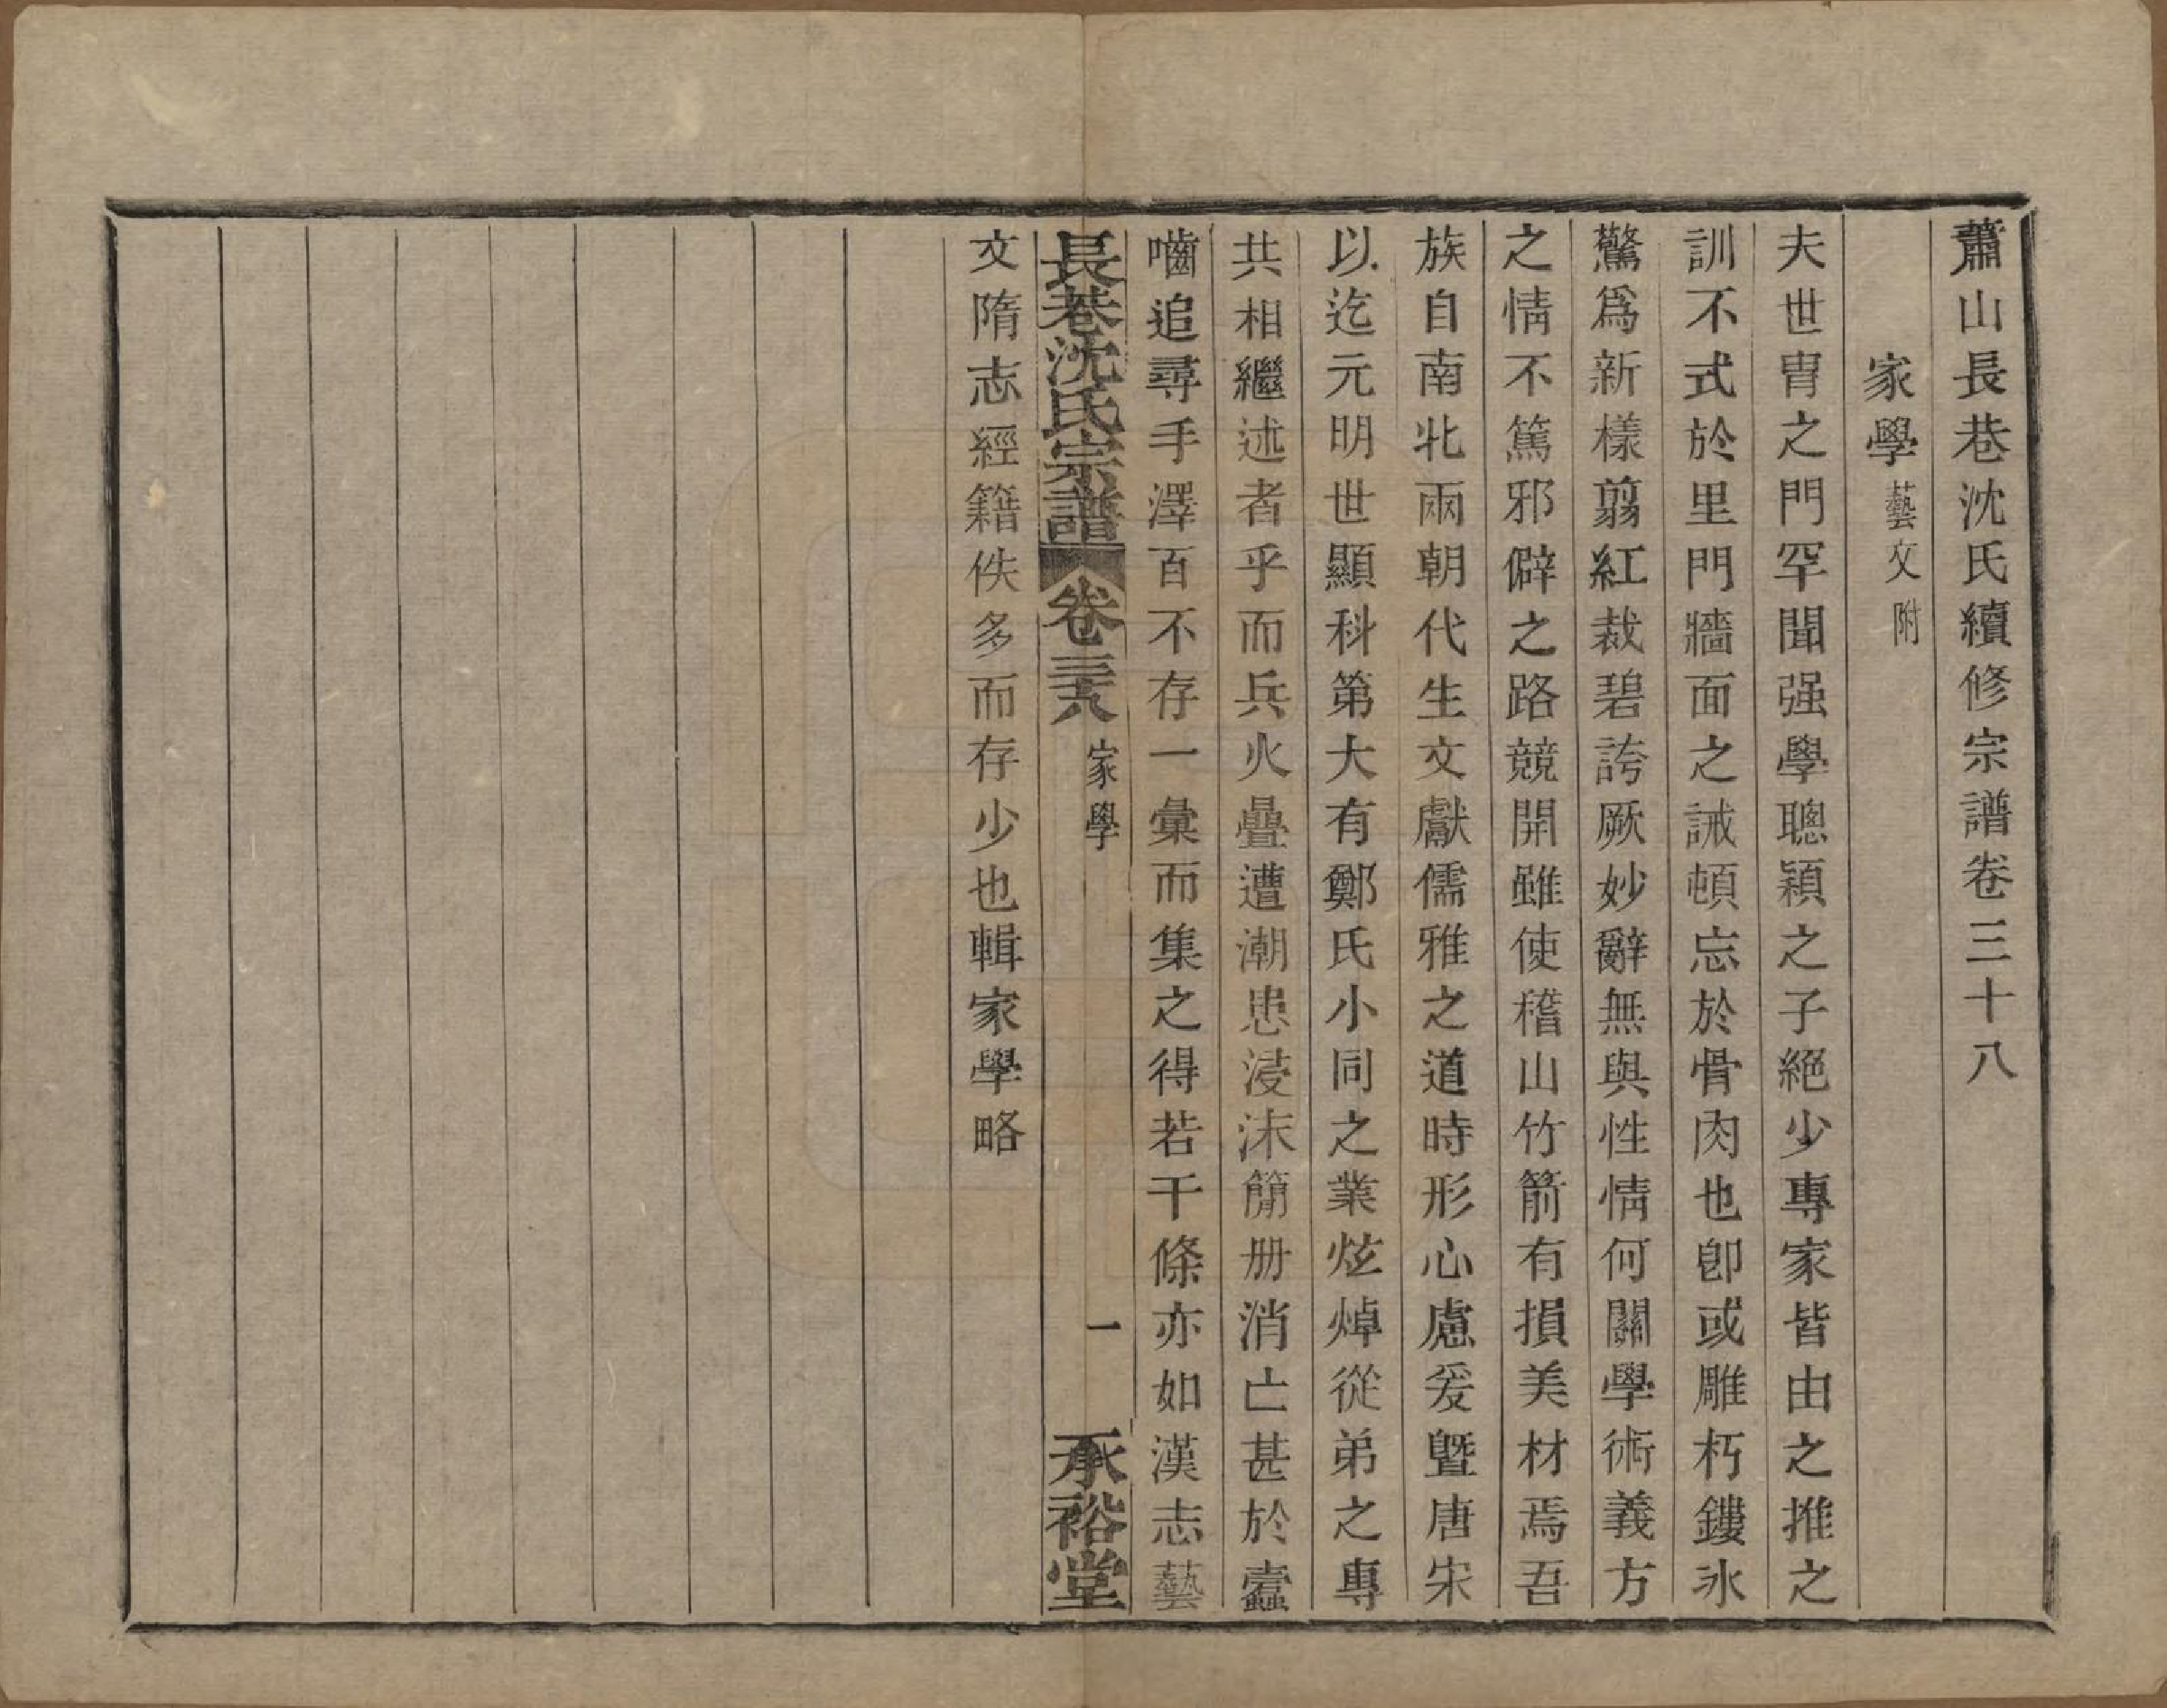 蕭山長巷沈氏續修宗譜卷三十八
家學藝文附
夫世冑之門罕聞强學聰穎之子絕少專家皆由之推之
訓不式於里門牆面之誡頓忘於骨肉也卽或雕朽鏤冰
驚爲新樣翦紅裁碧誇厥妙辭無與性情何關學術義方
之情不篤邪僻之路競開雖使稽山竹箭有損美材焉吾
族自南北兩朝代生文獻儒雅之道時形心慮爰曁唐宋
以迄元明世顯科第大有鄭氏小同之業炫焯從弟之專
共相繼述者乎而兵火疊遭潮患浸沫簡册消亡甚於蠹
嚙追尋手澤百不存一彙而集之得若干條亦如漢志藝
長巷沈氏宗譜 卷三十八 家學 一 承裕堂
文隋志經籍佚多而存少也輯家學略